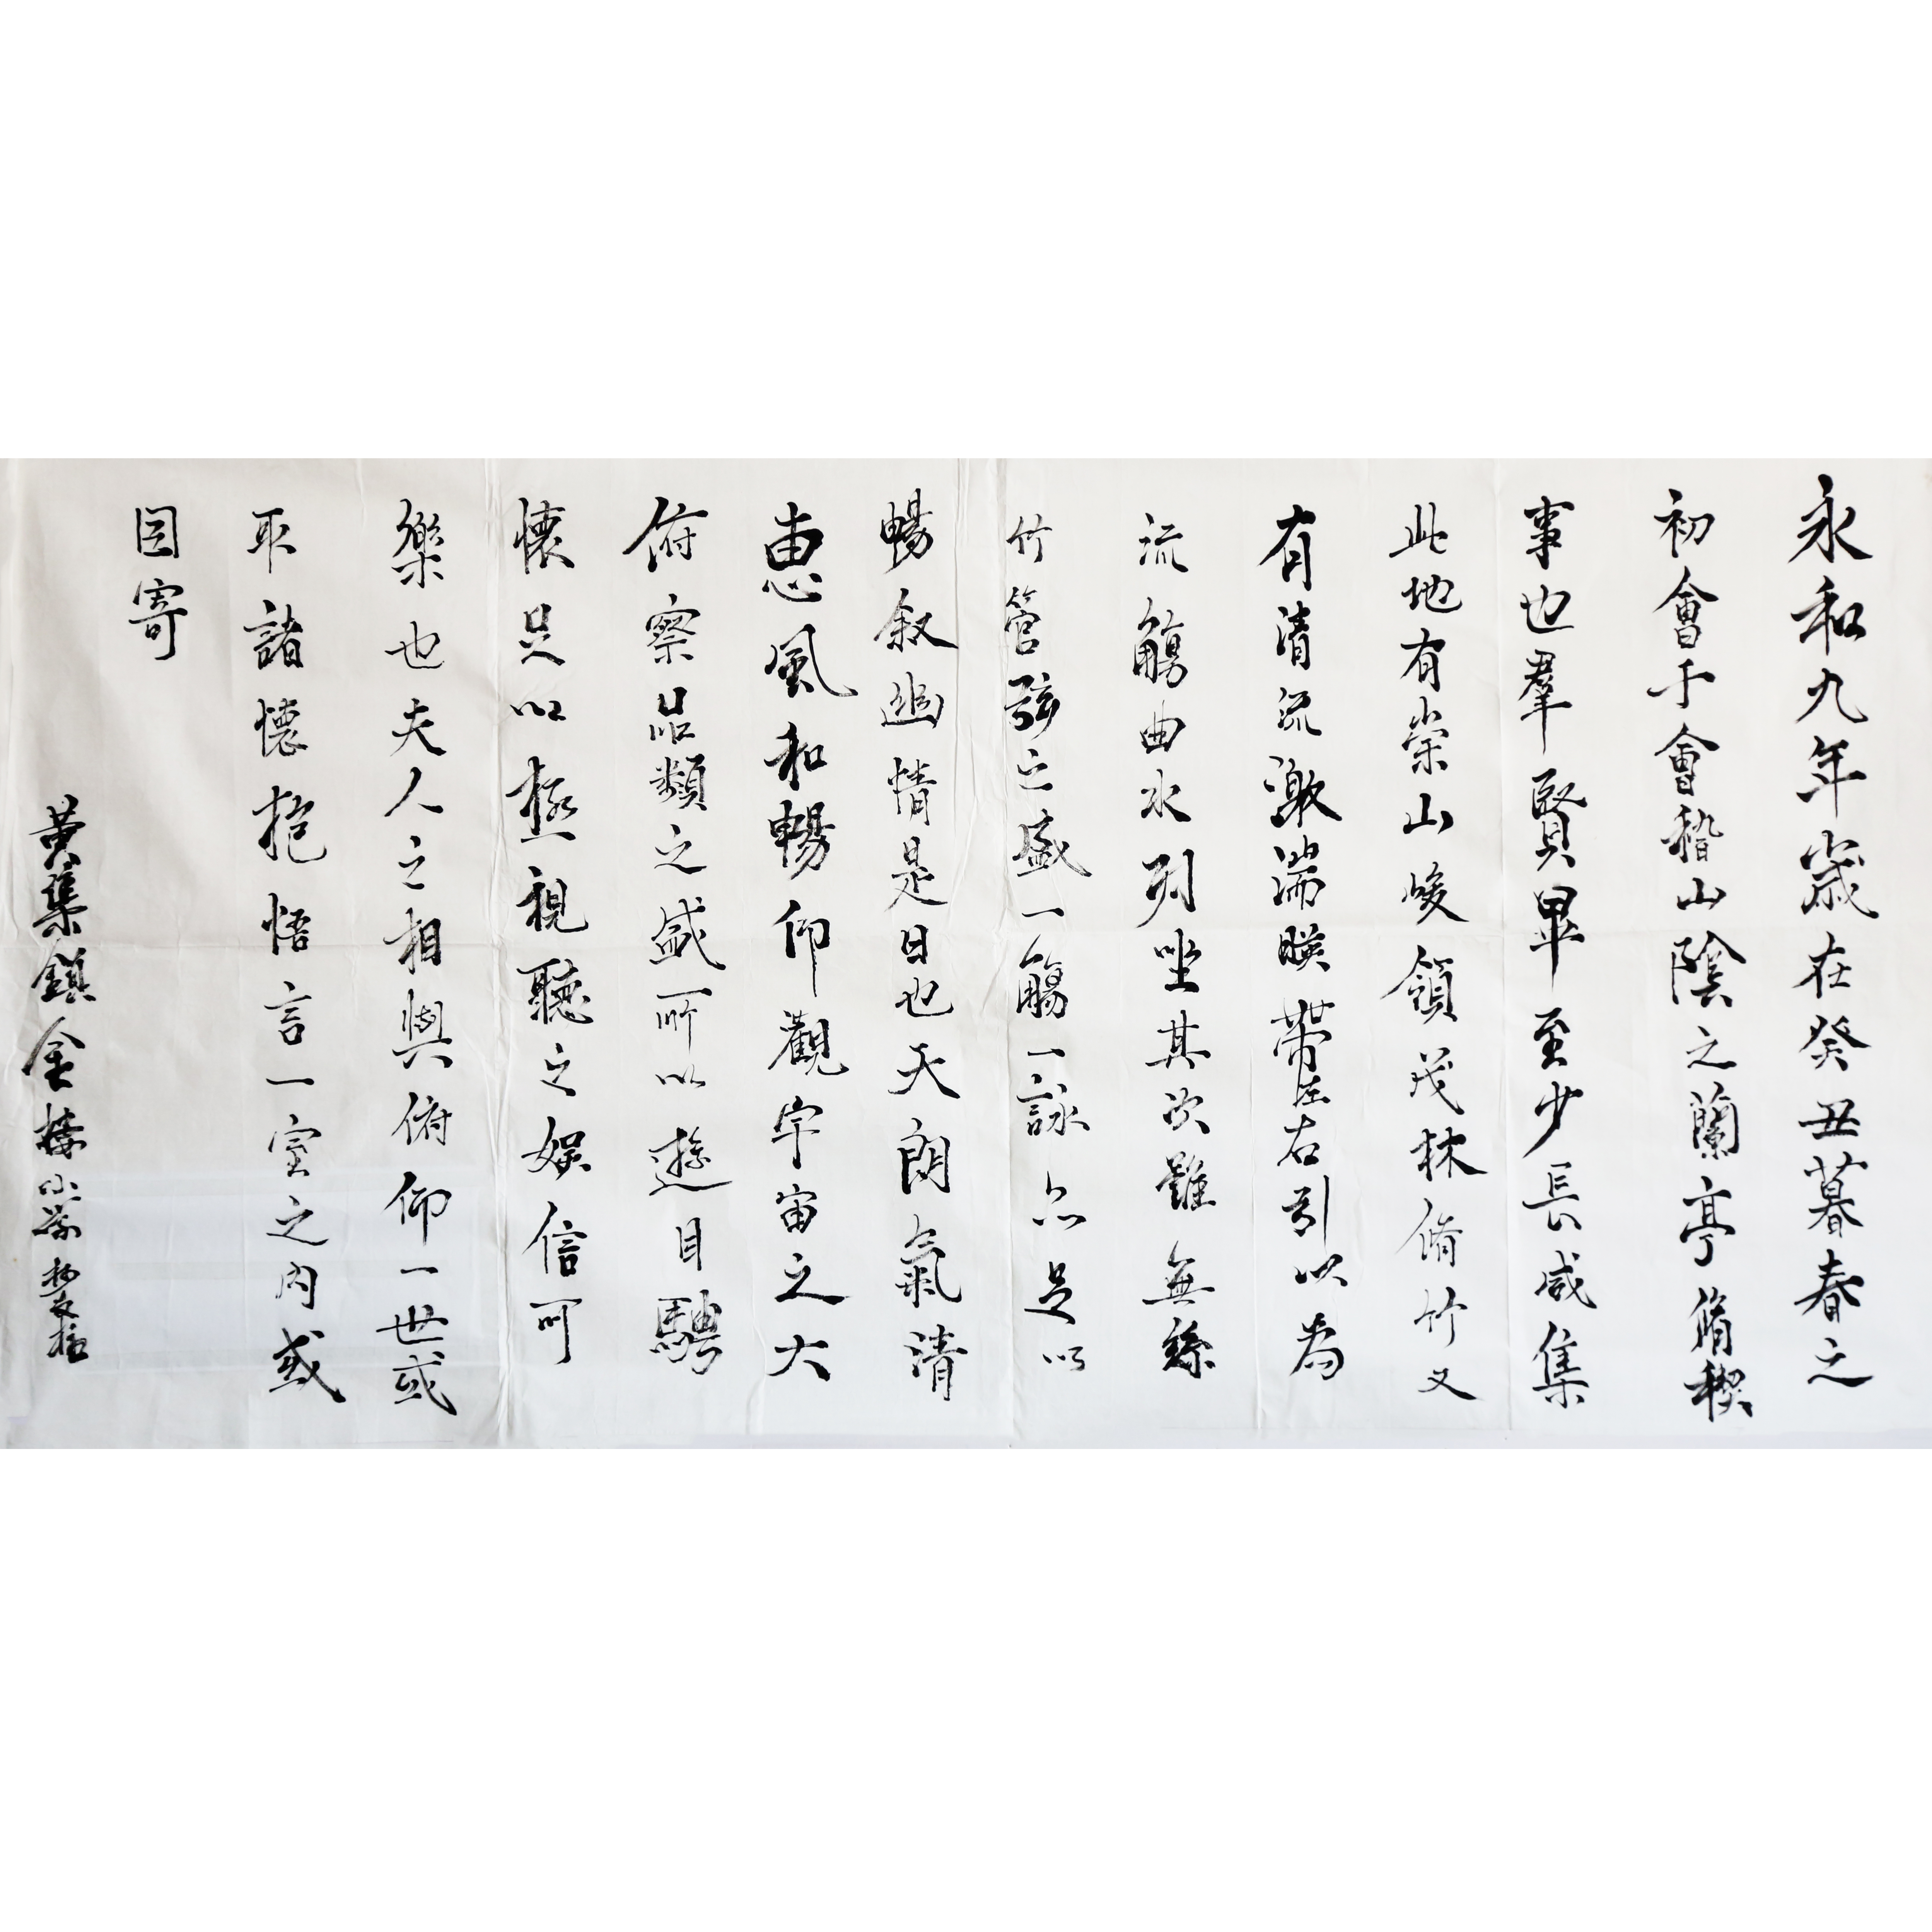 永和九年歲在癸丑暮春之
初會于會稽山陰之蘭亭脩稧
事也羣賢畢至少長咸集
此地有崇山峻領茂林脩竹又
有清流激湍暎帶左右引以為
流觴曲水列坐其次雖無絲
竹管弦之盛一觴一詠亦足以
暢叙幽情是日也天朗氣清
惠風和暢仰觀宇宙之大
俯察品類之盛所以遊目騁
懷足以極視聽之娛信可
樂也夫人之相與俯仰一世或
取諸懷抱悟言一室之內或
因寄
黃集鎮金樓小學